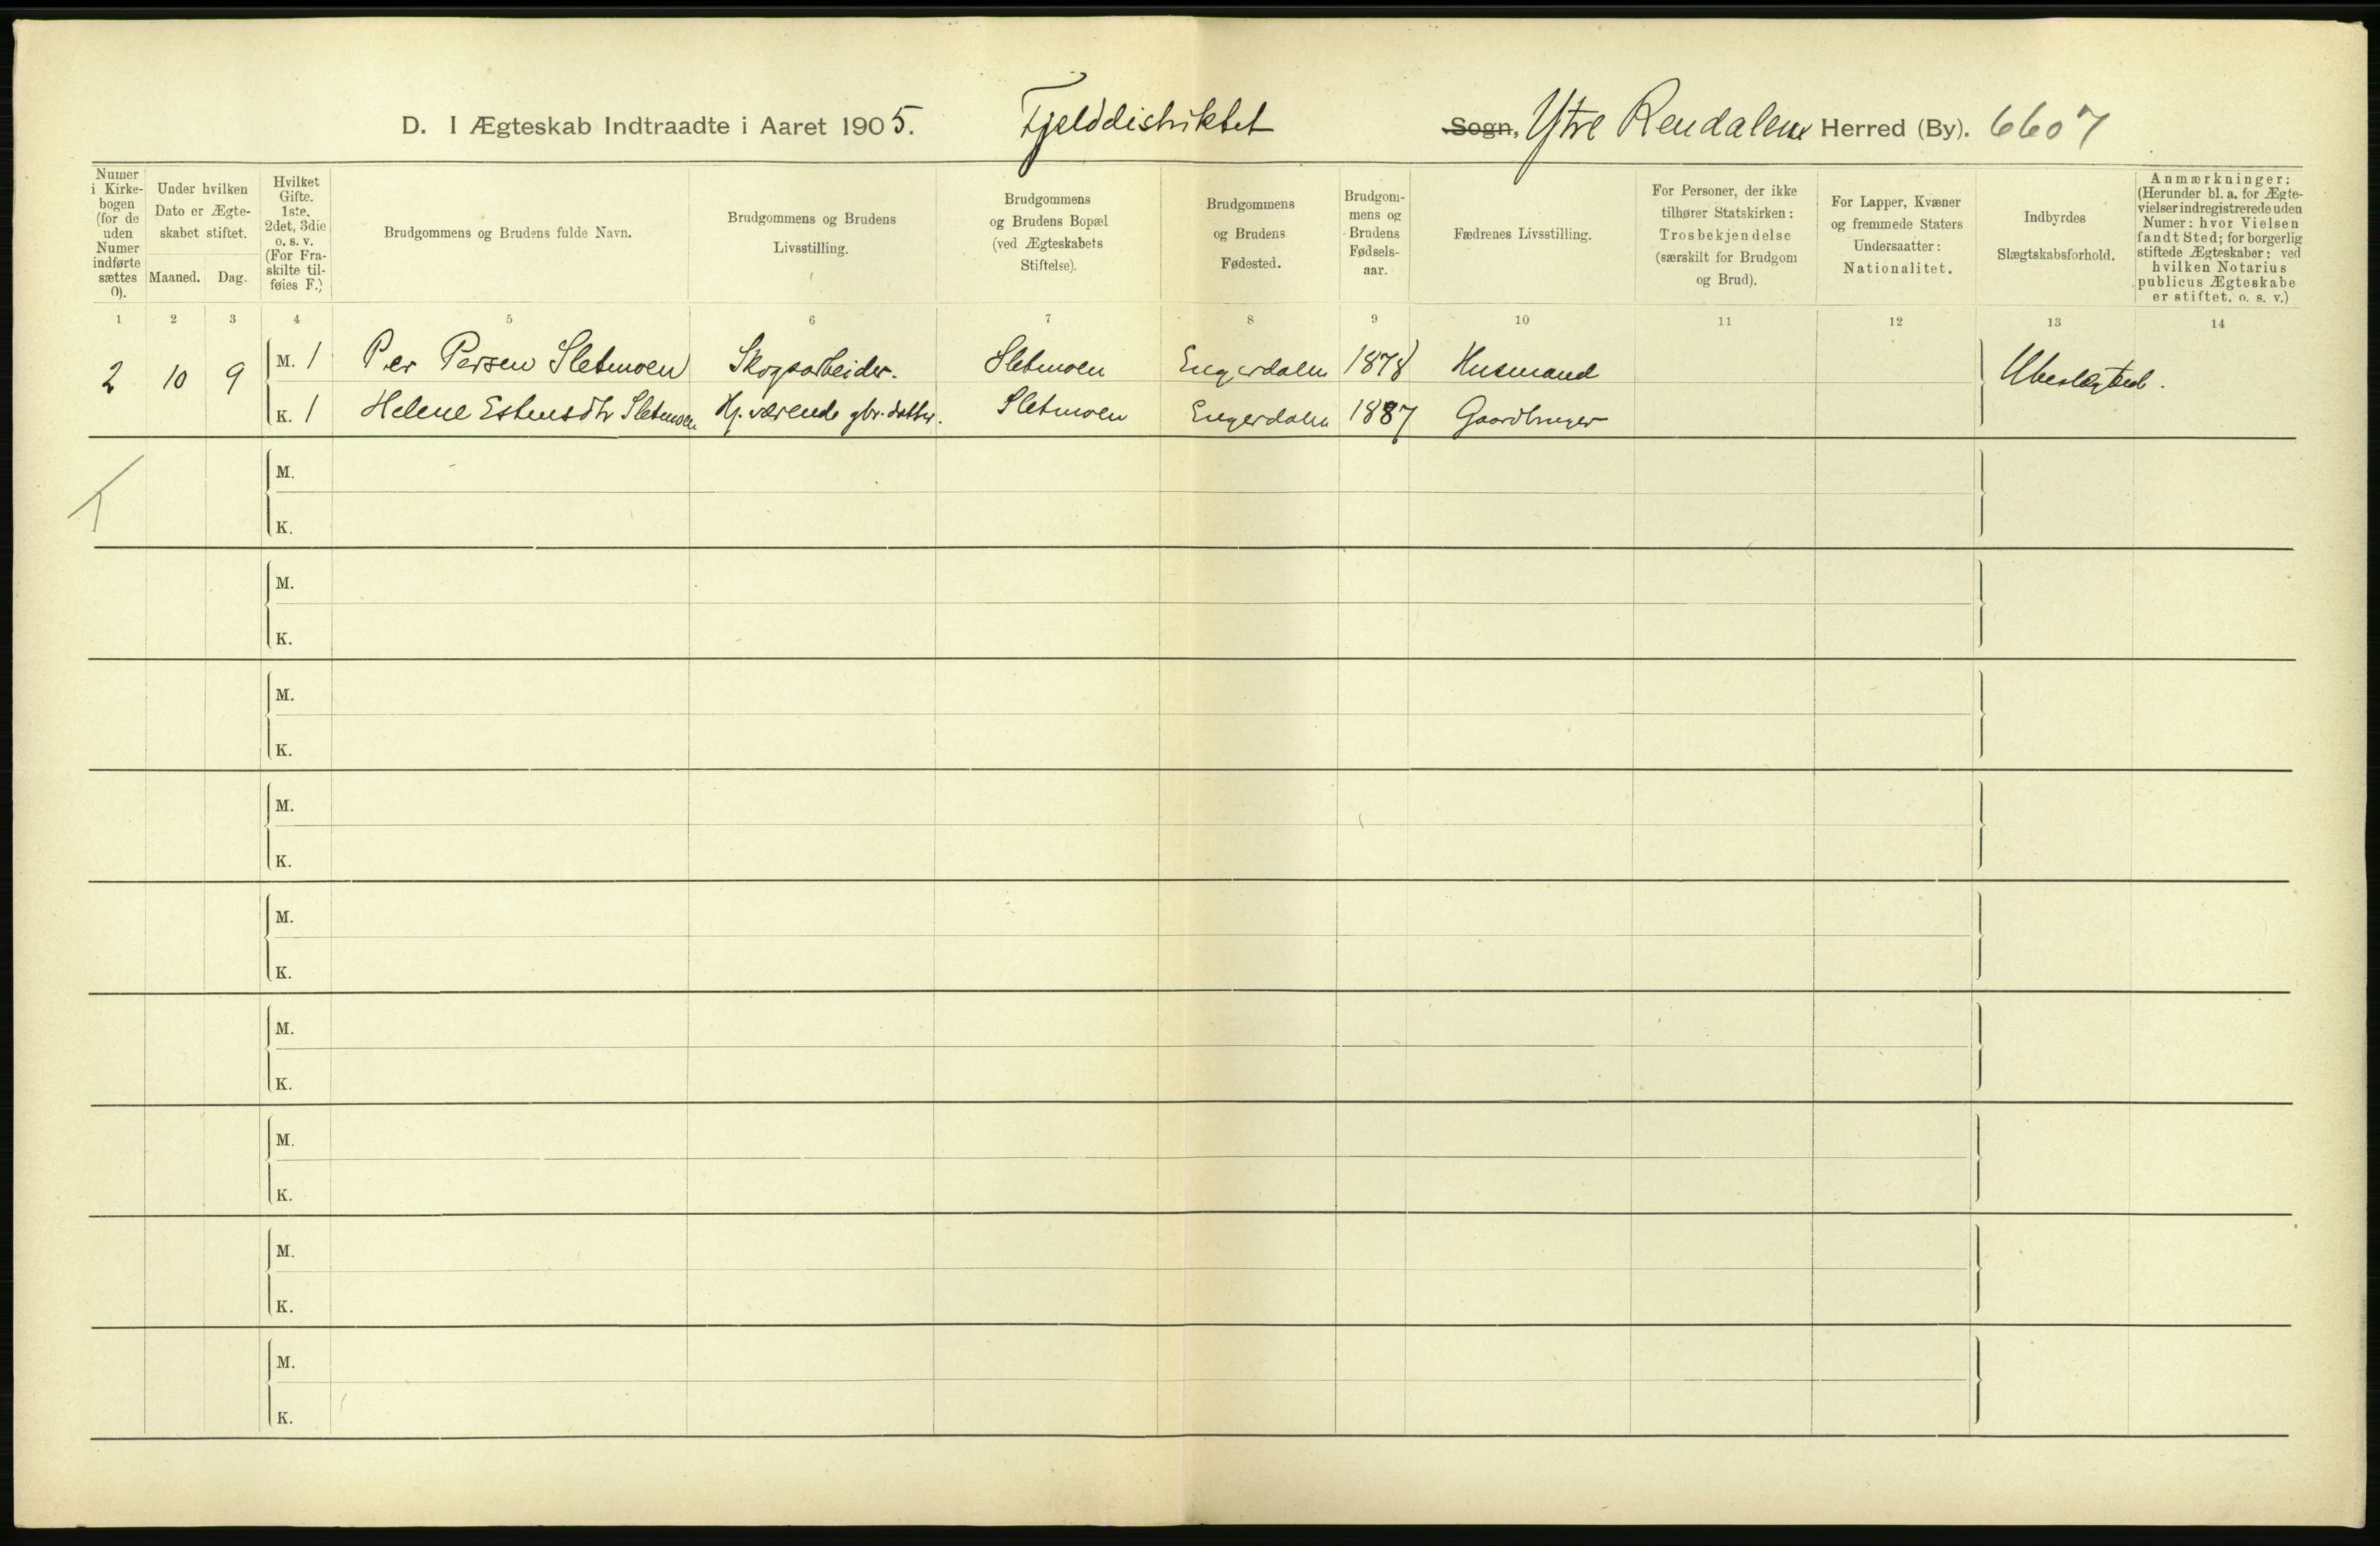 D. I Ægteskab Indtraadte i Aaret 1905. Fjelddistriktet Sogn, Ytre Rendalens Herred (By). 6607
Numer i Kirke-bogen (for de uden Numer indførte sættes 0).
Under hvilken Dato er Ægte-skabet stiftet.
Maaned. Dag.
Hvilket Gifte. 1ste, 2det, 3die o. s. v. (For Fra-skilte til-føies F.)
Brudgommens og Brudens fulde Navn.
Brudgommens og Brudens Livsstilling.
Brudgommens og Brudens Bopæl (ved Ægteskabets Stiftelse).
Brudgommens og Brudens Fødested.
Brudgom-mens og Brudens Fødsels-aar.
Fædrenes Livsstilling.
For Personer, der ikke tilhører Statskirken: Trosbekjendelse (særskilt for Brudgom og Brud).
For Lapper, Kvæner og fremmede Staters Undersaatter: Nationalitet.
Indbyrdes Slægtskabsforhold.
Anmærkninger: (Herunder bl. a. for Ægte-vielser indregistrerede uden Numer: hvor Vielsen fandt Sted; for borgerlig stiftede Ægteskaber: ved hvilken Notarius publicus Ægteskabe er stiftet, o. s. v.)
1 2 3 4 5 6 7 8 9 10 11 12 13 14
2 10 9 M. 1 Per Persen Sletmoen Skogsarbeider. Sletmoen Engerdalen 1878 Husmand Ubeslægted.
K. 1 Helene Estensdtr Sletmoen Hj. værende gbr. datter. Sletmoen Engerdalen 1887 Gaardbruger
M.
K.
M.
K.
M.
K.
M.
K.
M.
K.
M.
K.
M.
K.
M.
K.
M.
K.